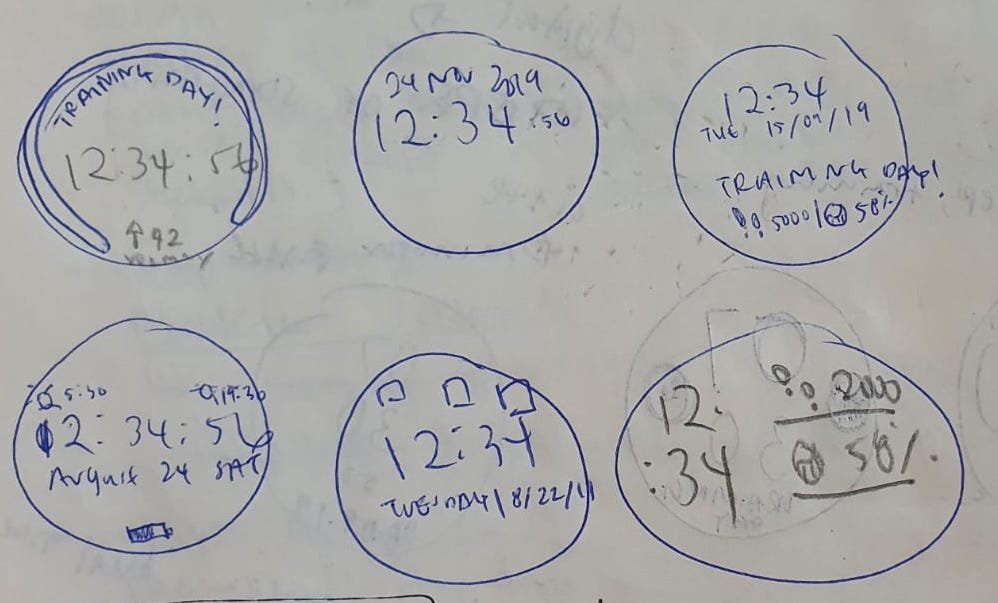 TRAINING DAY!
12:34:56
↑92
24 NOV 2019
12:34:56
12:34
TUE 15/07/19
TRAINING DAY!
5000 | 58%
5:30 19:30
12:34:56
August 24 SAT
12:34
TUESDAY | 8/22/11
12:
:34
2000
58%